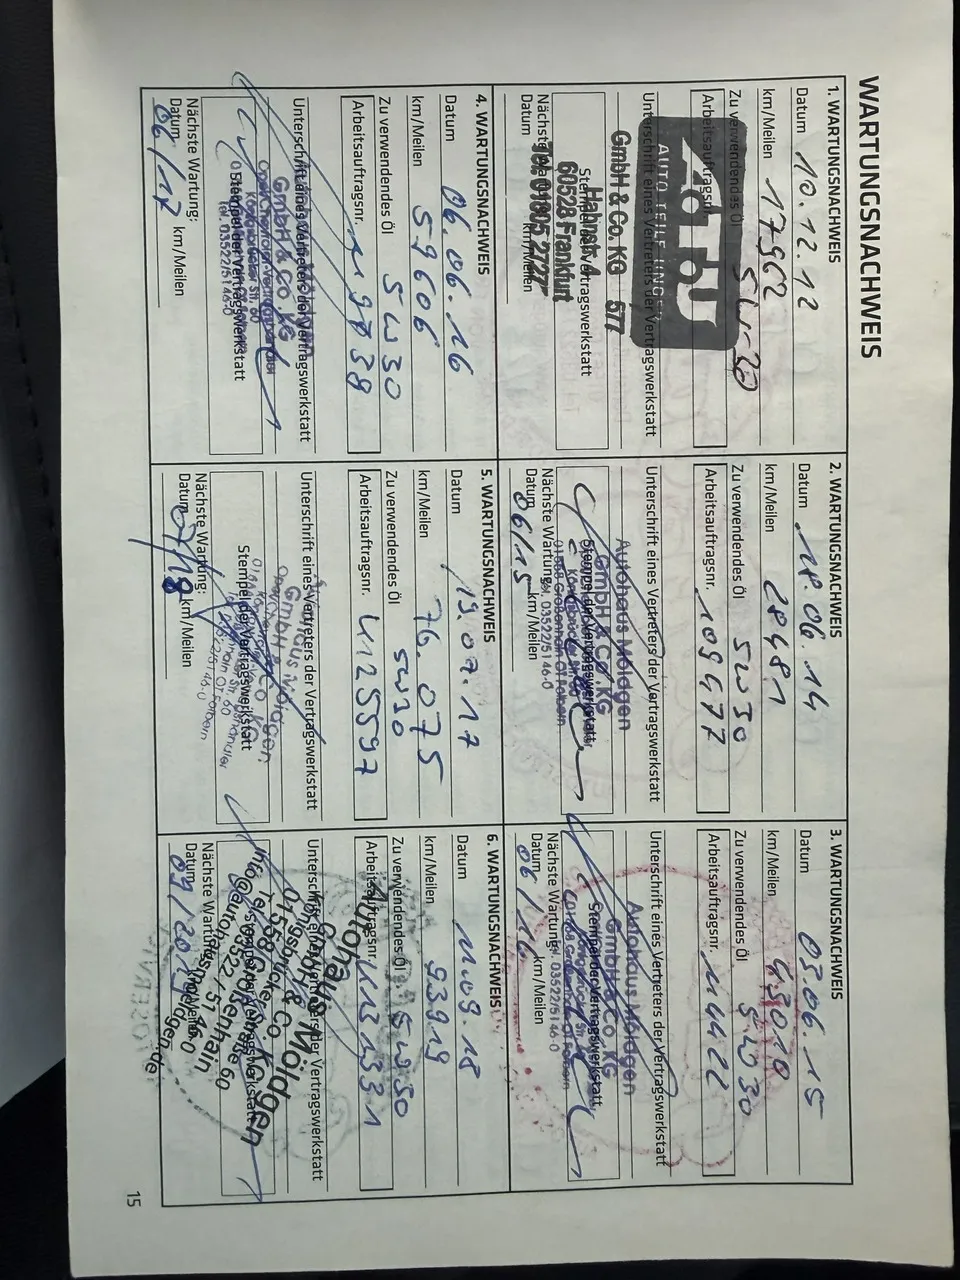 WARTUNGSNACHWEIS
1. WARTUNGSNACHWEIS
Datum 10.12.12
km/Meilen 17962
Zu verwendendes Öl 5W-30
Arbeitsauftragsnr.
A.T.U
AUTO TEILE UNGER
Unterschrift eines Vertreters der Vertragswerkstatt
GmbH & Co. KG 577
Hahnstr. 4
Stempel der Vertragswerkstatt
60528 Frankfurt
Nächste
Tel. 01805 2727
Datum km/Meilen
2. WARTUNGSNACHWEIS
Datum 18.06.14
km/Meilen 28481
Zu verwendendes Öl 5W30
Arbeitsauftragsnr. 109477
Unterschrift eines Vertreters der Vertragswerkstatt
Autohaus Möldgen
GmbH & Co. KG
Stempel der Vertragswerkstatt
Nächste Wartung: 03522/51 46-0
Datum 06/15 km/Meilen
3. WARTUNGSNACHWEIS
Datum 03.06.15
km/Meilen 43010
Zu verwendendes Öl 5W30
Arbeitsauftragsnr.
Unterschrift eines Vertreters der Vertragswerkstatt
Autohaus Möldgen
GmbH & Co. KG
Stempel der Vertragswerkstatt
Nächste Wartung: 03522/51 46-0
Datum 06/16 km/Meilen
4. WARTUNGSNACHWEIS
Datum 06.06.16
km/Meilen 59606
Zu verwendendes Öl 5W30
Arbeitsauftragsnr.
Unterschrift eines Vertreters der Vertragswerkstatt
GmbH & Co. KG
Stempel der Vertragswerkstatt
Tel. 03522/51 46-0
Nächste Wartung:
Datum 06/17 km/Meilen
5. WARTUNGSNACHWEIS
Datum 19.07.17
km/Meilen 76.075
Zu verwendendes Öl 5W30
Arbeitsauftragsnr. 4125597
Unterschrift eines Vertreters der Vertragswerkstatt
Stempel der Vertragswerkstatt
Nächste Wartung:
Datum 07/18 km/Meilen
6. WARTUNGSNACHWEIS
Datum 11.09.18
km/Meilen 93919
Zu verwendendes Öl 5W30
Arbeitsauftragsnr.
Autohaus Möldgen
GmbH & Co. KG
Unterschrift eines Vertreters der Vertragswerkstatt
Königsbrücker Straße 60
01558 Großenhain
Tel. 03522 / 51 46-0
info@autohaus-moeldgen.de
Stempel der Vertragswerkstatt
Nächste Wartung:
Datum 09/2019 km/Meilen
15